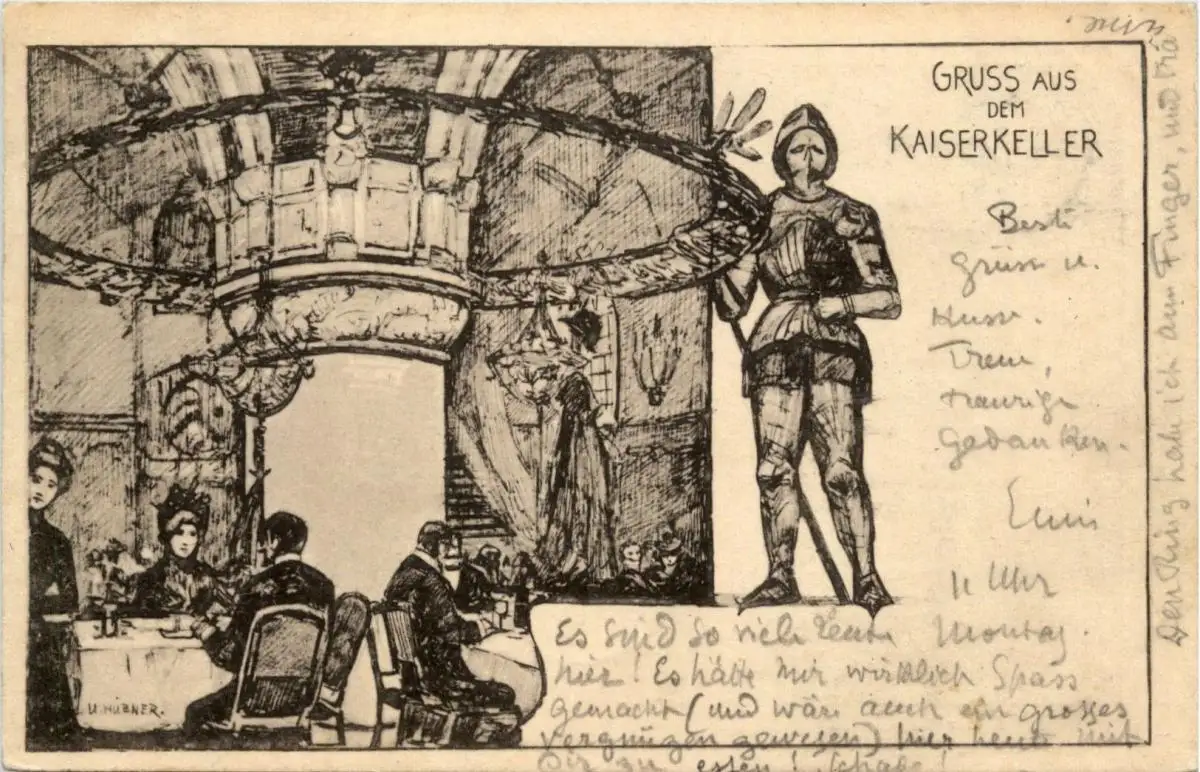 GRUSS AUS
DEM
KAISERKELLER
Beste
Grüsse u.
Kuss.
Treue,
traurige
Gedanken.
11 Uhr
Montag.
Es sind so viele Leute
hier! Es hätte mir wirklich Spass
gemacht (und wäre auch ein grosses
Vergnügen gewesen) hier heute mit
Dir zu essen! Schade!
Den Ring habe ich am Finger, und
U. HÜBNER.